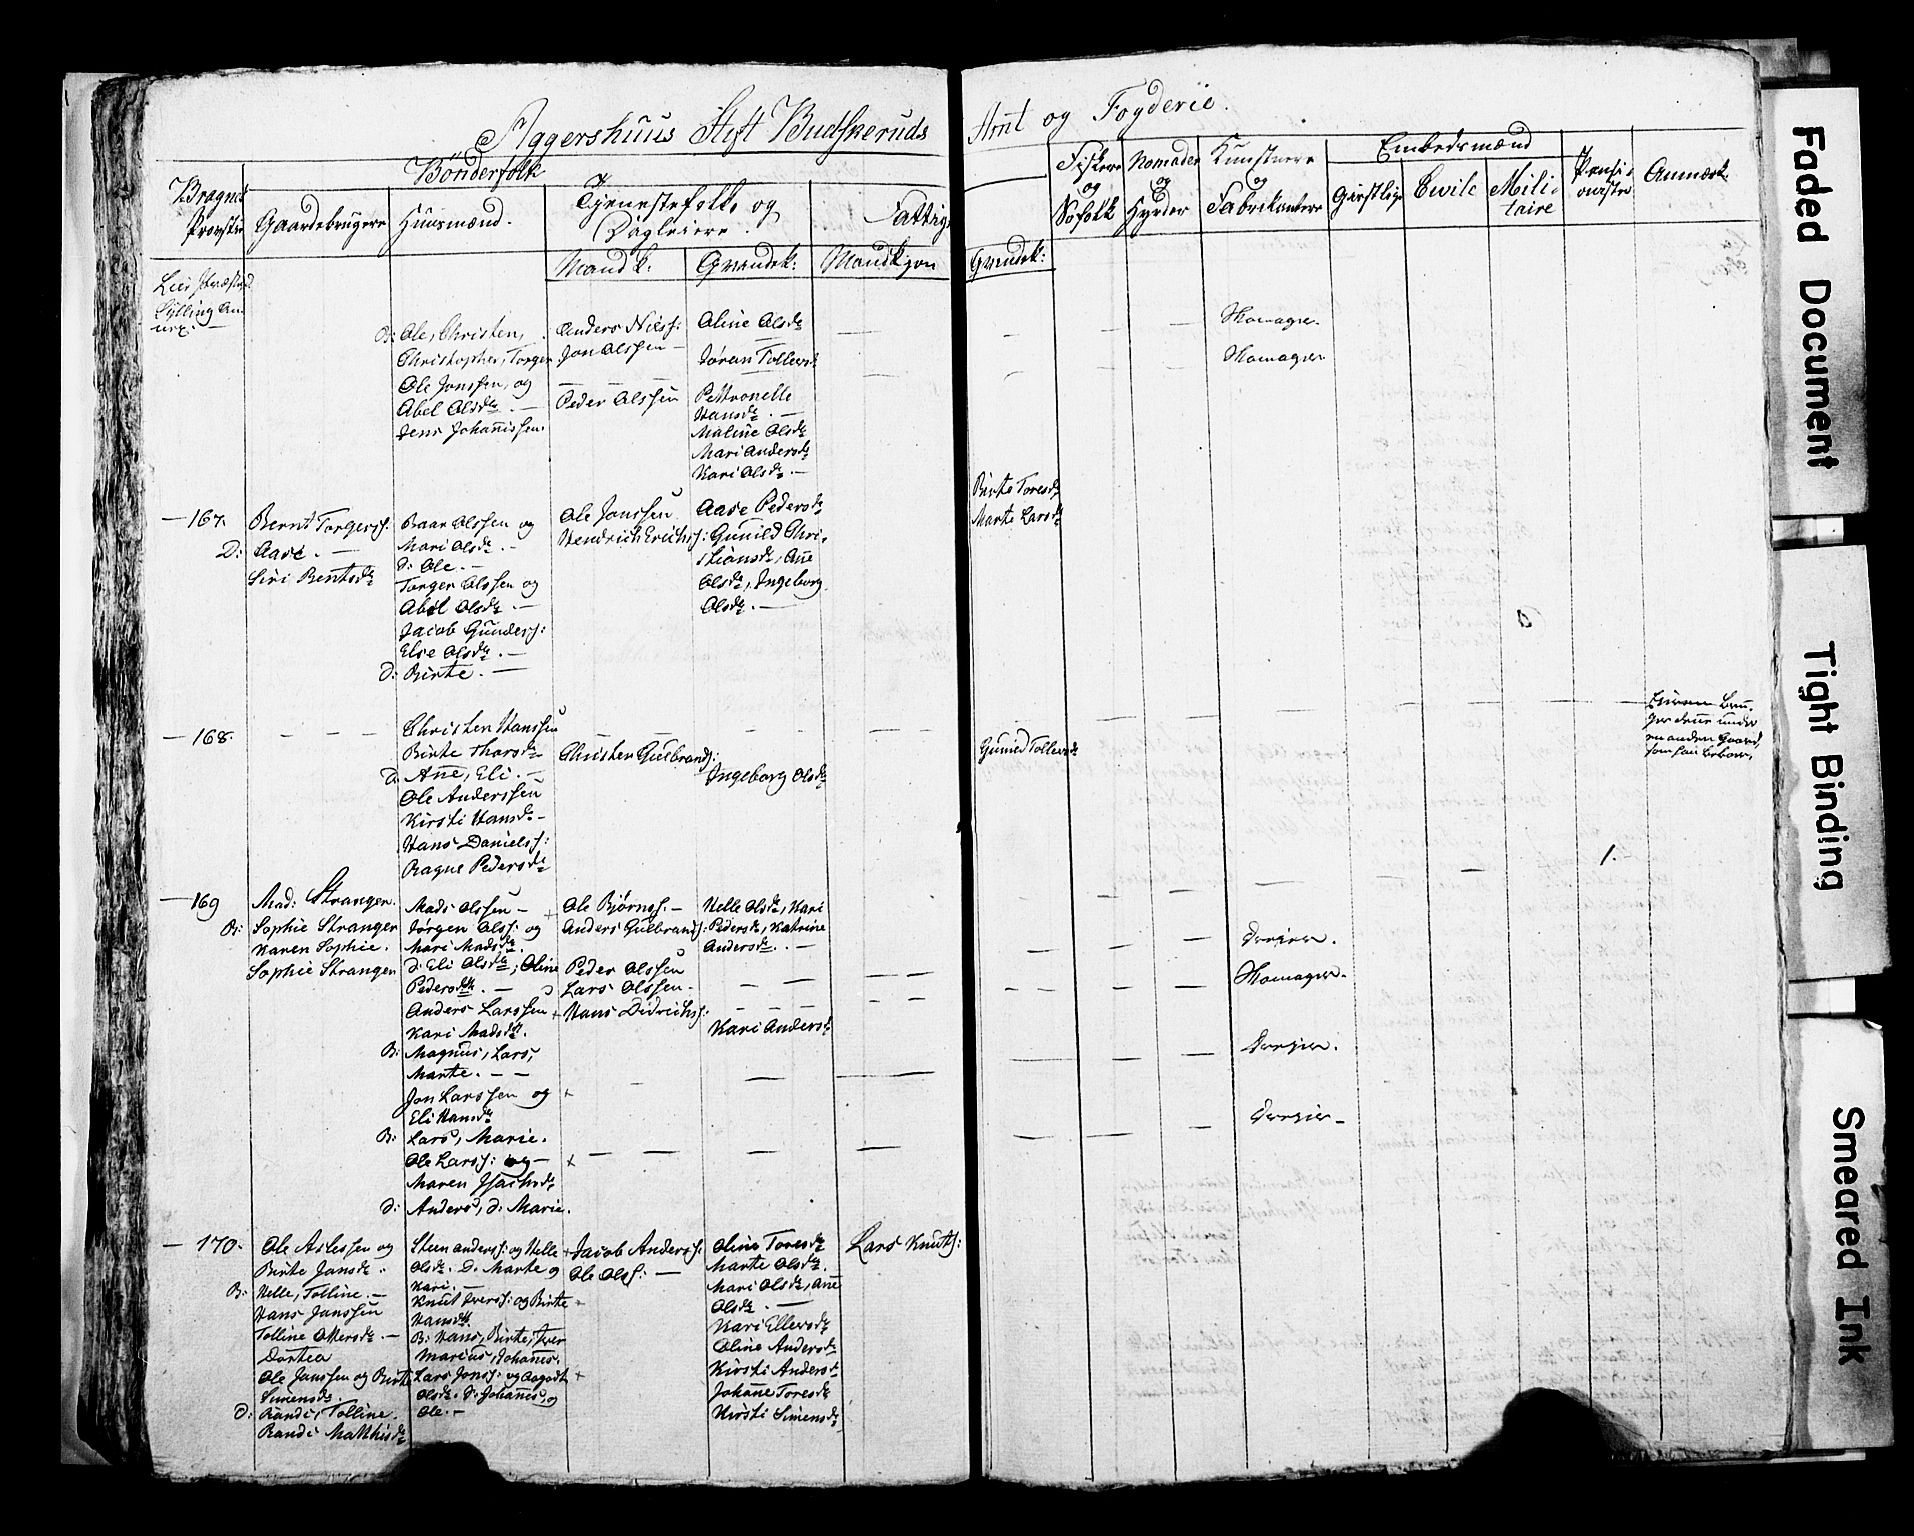 Aggershuus Stift Budskeruds Amt og Fogderie.
Bønderfolk
Bragnes Provstie
Gaardebrugere
Huusmænd.
Tjenestefolk og Dagleiere.
Mandk: Qvindek:
Fattige
Mandkjøn Qvindek:
Fiskere og Søfolk
Nomader og Hyrder
Kunstnere og Fabrikantere
Embedsmænd
Giestlige Civile Militaire
Pensionister
Anmærk.
Lier Præstegd
Sylling An-
nex. —
B: Ole, Christen,
Christopher, Torger
Ole Jonssen, og
Abel Olsdr. —
Jens Johanissen.
Anders Nilss:
Jon Olssen —
Peder Olssen
Oline Olsdr
Jøran Tollevsdr
Pettronelle
Hansdr. —
Maline Olsdr
Mari Andersdr
Kari Olsdr. —
Skomager.
Skomager
— 167.
Bernt Torgerss:
D: Aase. —
Siri Bentsdr
Baar Olssen og
Mari Olsdr. —
d: Ole. —
Torger Olssen og
Abel Olsdr. —
Jacob Gunderss:
Else Olsdr. —
d: Birte. —
Ole Jonssen
Hendrich Erichss:
Aase Pedersdr
Gunild Chri-
stiansdr, Ane
Olsdr, Ingeborg
Olsdr. —
Birte Toresdr
Marte Larsdr
— 168.
Christen Hanssen
Birte Tharsdr
D: Ane, Eli. —
Ole Anderssen
Kirsti Hansdr —
Hans Danielss:
Ragne Pedersdr
Christen Gulbrands:
Ingeborg Olsdr
Gunild Tollevsdr
denne under
en anden Gaard,
1.
— 169
Mad: Stranger.
B: Sophie Stranger
Karen Sophie.
Sophie Stranger
Mads Olssen —
Jørgen Olss: og
Mari Madsdr.
d: Eli Olsdr, Oline
Pedersdr. —
Anders Larssen
Kari Madsdr.
B: Magnus, Lars,
Marte. — —
Jon Larssen og
Eli Hansdr
B: Lars, Marie.
Ole Larss: og —
Maren Isachsdr
d: Anders, d: Marie.
+ Ole Bjørnss: —
Anders Gulbrands:
Peder Olssen
Lars Olssen —
+ Hans Didrichss:
Helle Olsdr, Kari
Pedersdr, Katrine
Andersdr. —
Kari Andersdr
Dreier.
Skomager.
Dreier.
Dreier —
— 170.
Ole Aslessen og
Birte Jonsdr.
B: Helle, Tolline. —
Hans Janssen
Tolline Ottersdr. —
Dortea
Ole Janssen og Birte
Simensdr.
D: Randi, Tolline.
Randi Mathisdr
Steen Anderss: og Helle
Olsdr. D: Marte og
Kari. —
Knut Iverss: og Birte
Hansdr.
B: Hans, Birte, Iver
Marius, Johanis.
Lars Jonss: og Aagodt
Olsdr. D: Johanis, og
Ole. —
+ Jacob Anderss:
Ole Olss: —
Oline Toresdr
Marte Olsdr
Mari Olsdr, Ane
Olsdr. —
Kari Ellevsdr
Oline Andersdr
Kirsti Andersdr
Johane Toresdr
Kirsti Simensdr
Lars Knuts:
Faded Document
Tight Binding
Smeared Ink